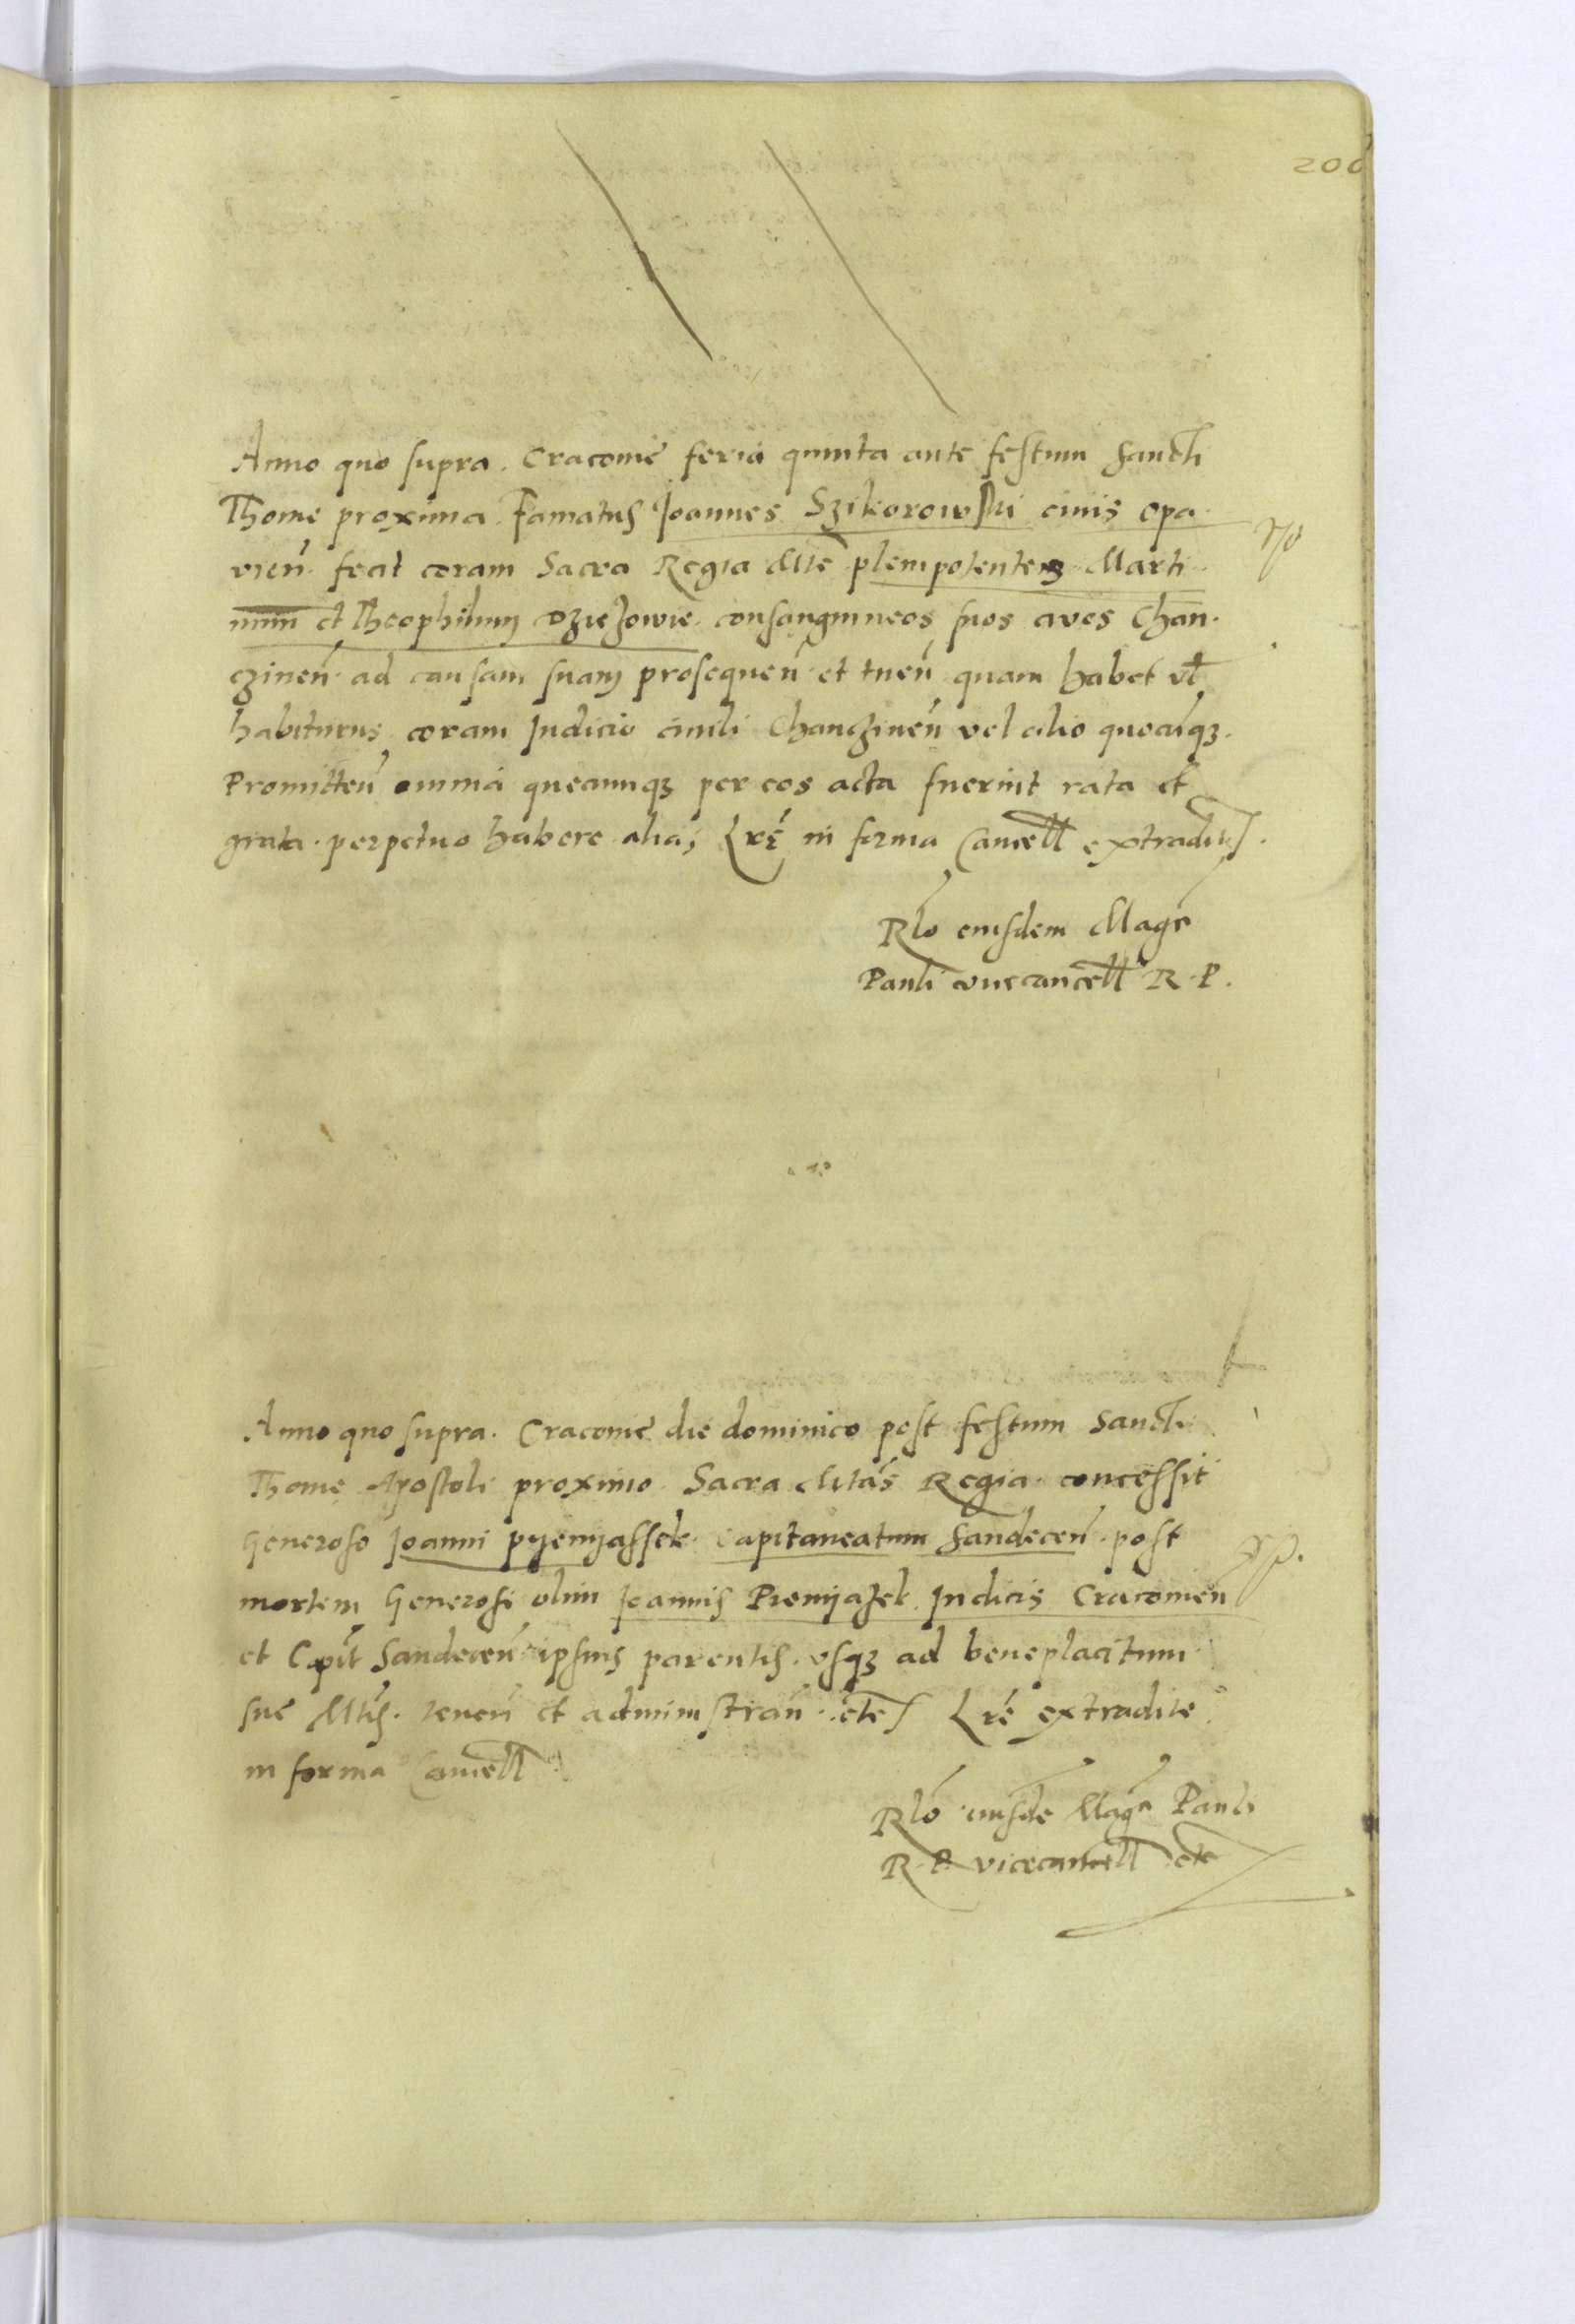 200
Anno quo supra. Cracovie feria quinta ante festum Sancti
Thome proxima Famatus Joannes Szikorowski civis Opa
vien̄ fecit coram Sacra Regia Mte plenipotentem Marti
num et Theophilum Dziezowie consanguineos suos cives Chan
czinen̄ ad causam suam prosequen̄ et tuen̄ quam habet vl̄
habiturus coram Judicio civili Chanczinen̄ vel alio quocūqȝ.
Promitten̄ omnia quecunqȝ per eos acta fuerint rata et
grata perpetuo habere alias Lrē in forma Cancell extradite.
Rlō eiusdem Magci
Pauli vicecancell R. P.
Anno quo supra. Cracovie die dominico post festum Sancti
Thome Apostoli proximo Sacra Mtās Regia concessit
Generoso Joanni pyenyassek Capitaneatum Sandecen̄ post
mortem Generosi olim Joannis Pienyazek Judicis Cracovien
et Capit Sandecen̄ ipsius parentis. vsqȝ ad beneplacitum
sue Mtis. tenen̄ et administran̄ etc Lrē extradite
in forma Cancell
Rlō eiusdē Magci Pauli
R. P. vicecancell etc